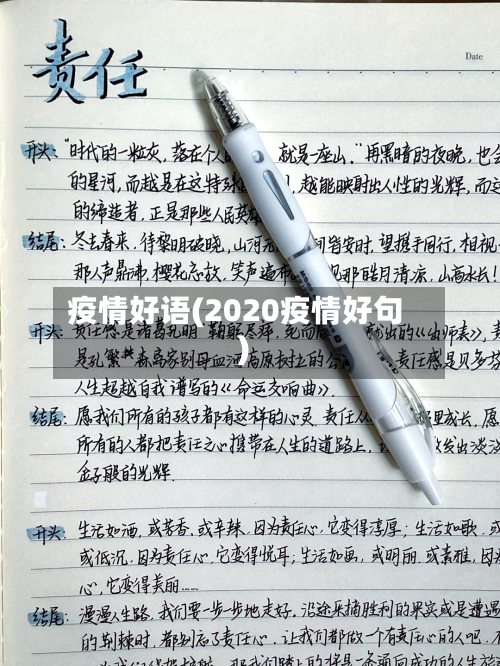 责任
Date
开头："时代的一粒灰，落在个人 就是一座山。"再黑暗的夜晚，也会
的星河，而越是在这特殊 越能映射出人性的光辉，而这
的缔造者，正是那些人民英雄
结尾：冬去春来，待黎明破晓，山河无 皆安时，望携手同行，相视一
那人声鼎沸，樱花忘敌，笑声遍布 那皓月清凉，山高水长！
疫情好语(2020疫情好句
)
开头：责任感是诸葛孔明"鞠躬尽瘁，死而 献出的《出师表》，
是孔繁森 别母 责任感是贝多芬
人生超越自我谱写的《命运交响曲》.
结尾：愿我们所有的孩子都有这样的心灵，责任从 里成长，愿
所有的人都把责任之心携带在人生的道路上， 发出淡淡
金子般的光辉.
开头：生活如酒，或芳香，或辛辣，因为责任心，它变得淳厚；生活如歌，或
或低沉，因为责任心，它变得悦耳；生活如画，或明丽，或素雅，因为
心，它变得美丽……
结尾：漫漫人生路，我们要一步一步地走好，沿途采摘胜利的果实或是遭遇
的荆棘时，都别忘了责任心，让我们都做一个有责任心的人吧，
那我们踏上的将是一条通向成功的人生